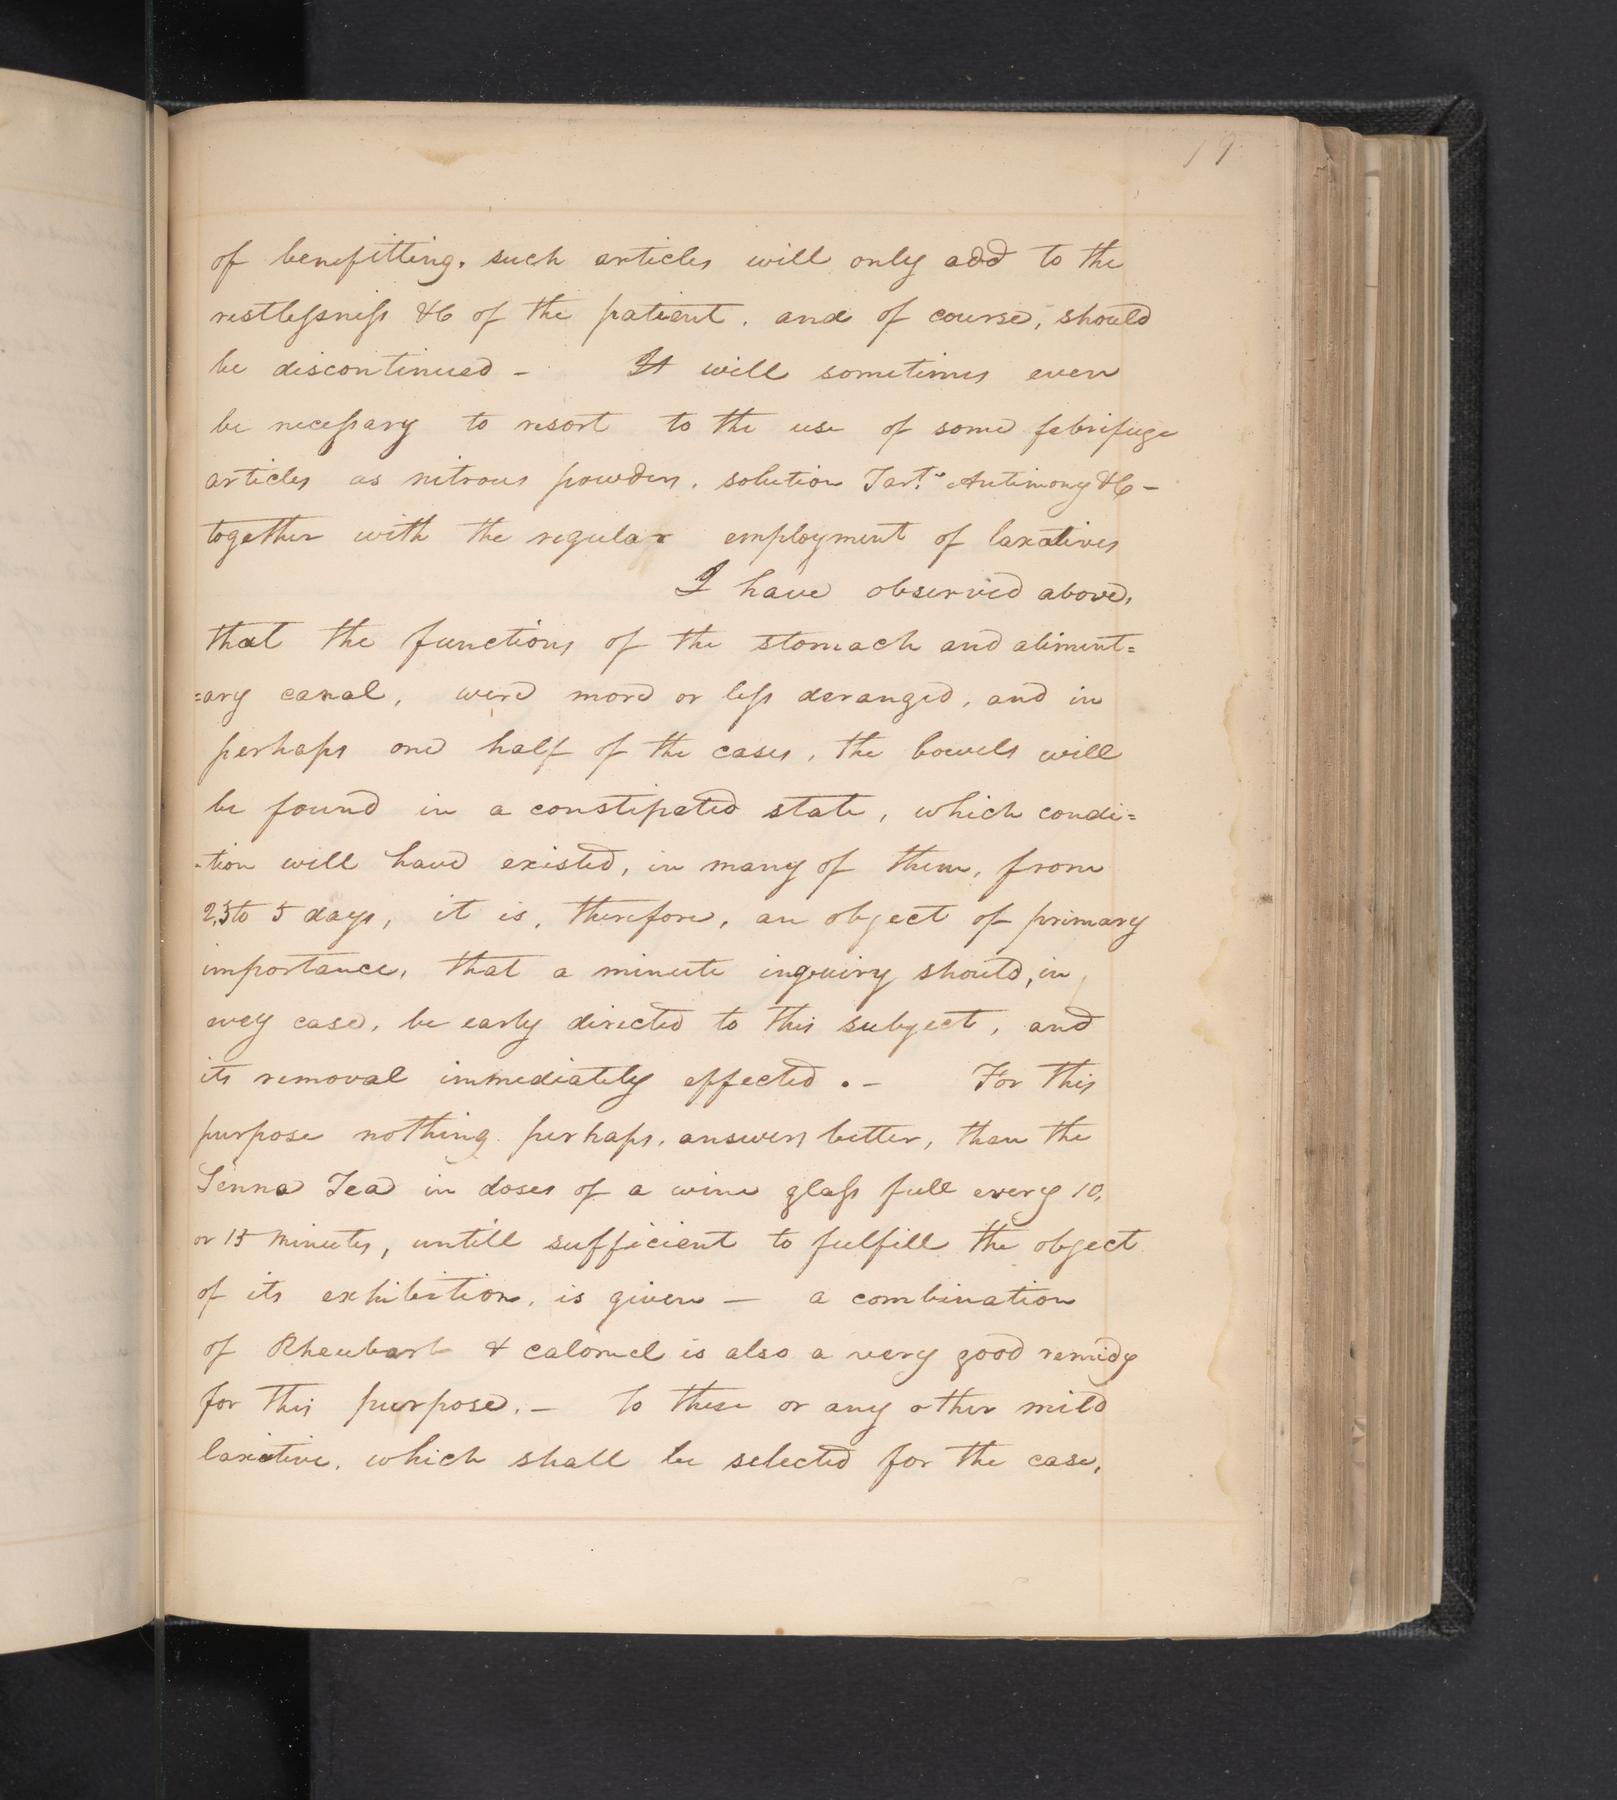 19
of benefitting, such articles will only add to the
restlessness &c of the patient, and of course, should
be discontinued - It will sometimes even
be necessary to resort to the use of some febrifuge
articles as nitrous powders, solution Tart. Antimony &c -
together with the regular employment of laxatives
I have observed above,
that the functions of the stomach and aliment=
=ary canal, were more or less deranged, and in
perhaps one half of the cases, the bowels will
be found in a constipated state, which condi=
-tion will have existed, in many of them, from
2,3 to 5 days, it is, therefore, an object of primary
importance, that a minute inquiry should, in
evey case, be early directed to this subject, and
its removal immediately effected . - For this
purpose nothing perhaps, answers better, than the
Senna Tea in doses of a wine glass full every 10,
or 15 minutes, untill sufficient to fulfill the object
of its exhibition, is given - a combination
of Rheubarb & calomel is also a very good remidy
for this purpose. - to these or any other mild
laxative, which shall be selected for the case,